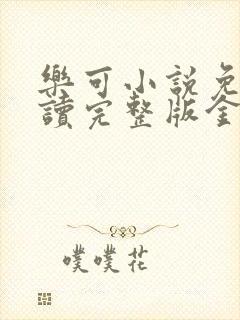 樂可小說免
讀完整版全
噗噗花